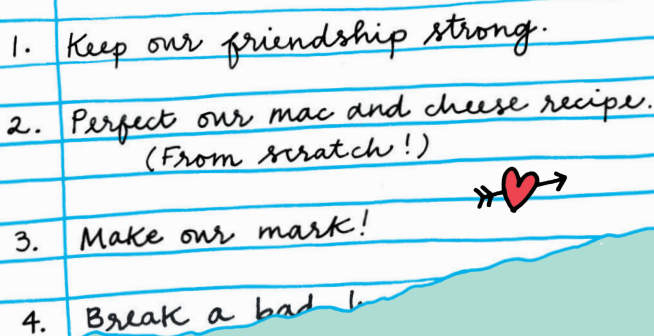 1. Keep our friendship strong.
2. Perfect our mac and cheese recipe.
(From scratch!)
3. Make our mark!
4. Break a bad